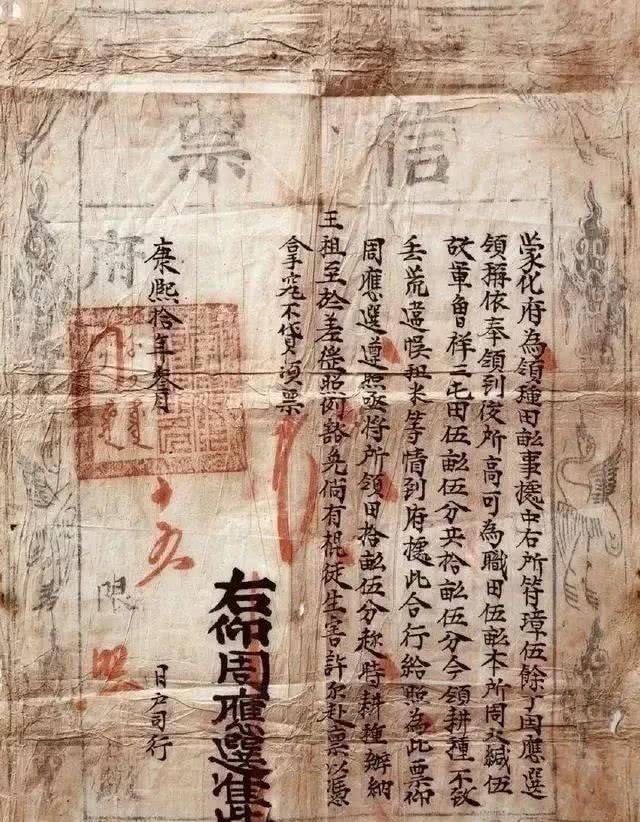 信票
蒙化府為領種田畝事據中右所符瑋伍餘丁周應選
領稱依奉領到後所高可為職田伍畝本所周文緘伍
故軍魯祥三屯田伍畝伍分共拾畝伍分今領耕種不致
丢荒違悞租米等情到府據此合行給照為此票仰
周應選遵照亟將所領田拾畝伍分称時耕種辦納
王租至於差徭照例豁免倘有棍徒生害許即赴票以憑
拿究不貸須票
右仰周應選准此
康熙拾年叁月
十五
日户司行
府
限
照